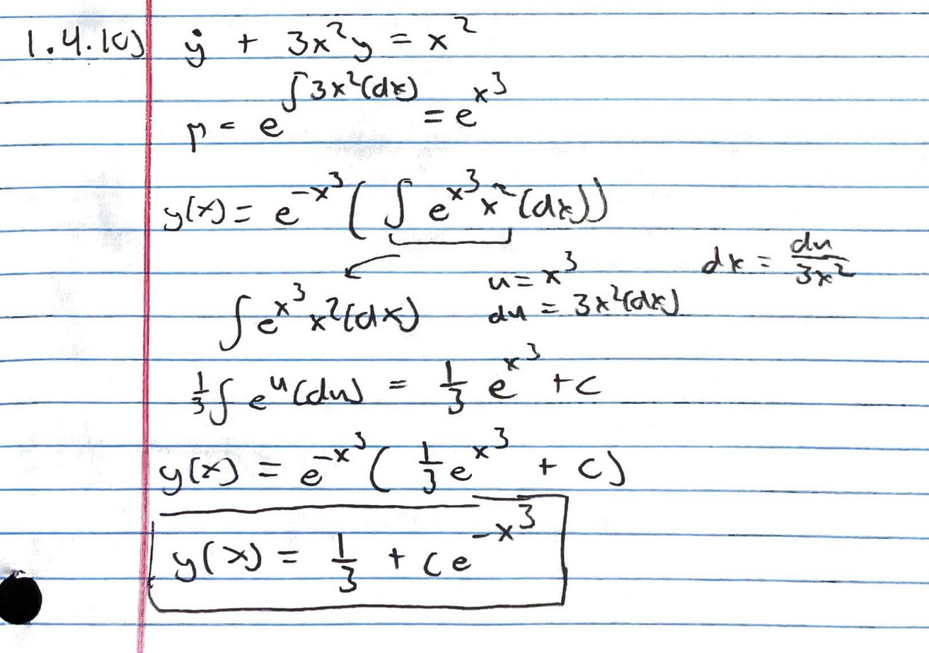 1.4.1c) ẏ + 3x²y = x²
μ = e^{∫3x²(dx)} = e^{x³}
y(x) = e^{-x³} ( ∫ e^{x³} x² (dx))
∫ e^{x³} x² (dx) u = x³ dx = du/3x²
du = 3x²(dx)
1/3 ∫ e^u (du) = 1/3 e^{x³} + c
y(x) = e^{-x³} ( 1/3 e^{x³} + c)
y(x) = 1/3 + c e^{-x³}